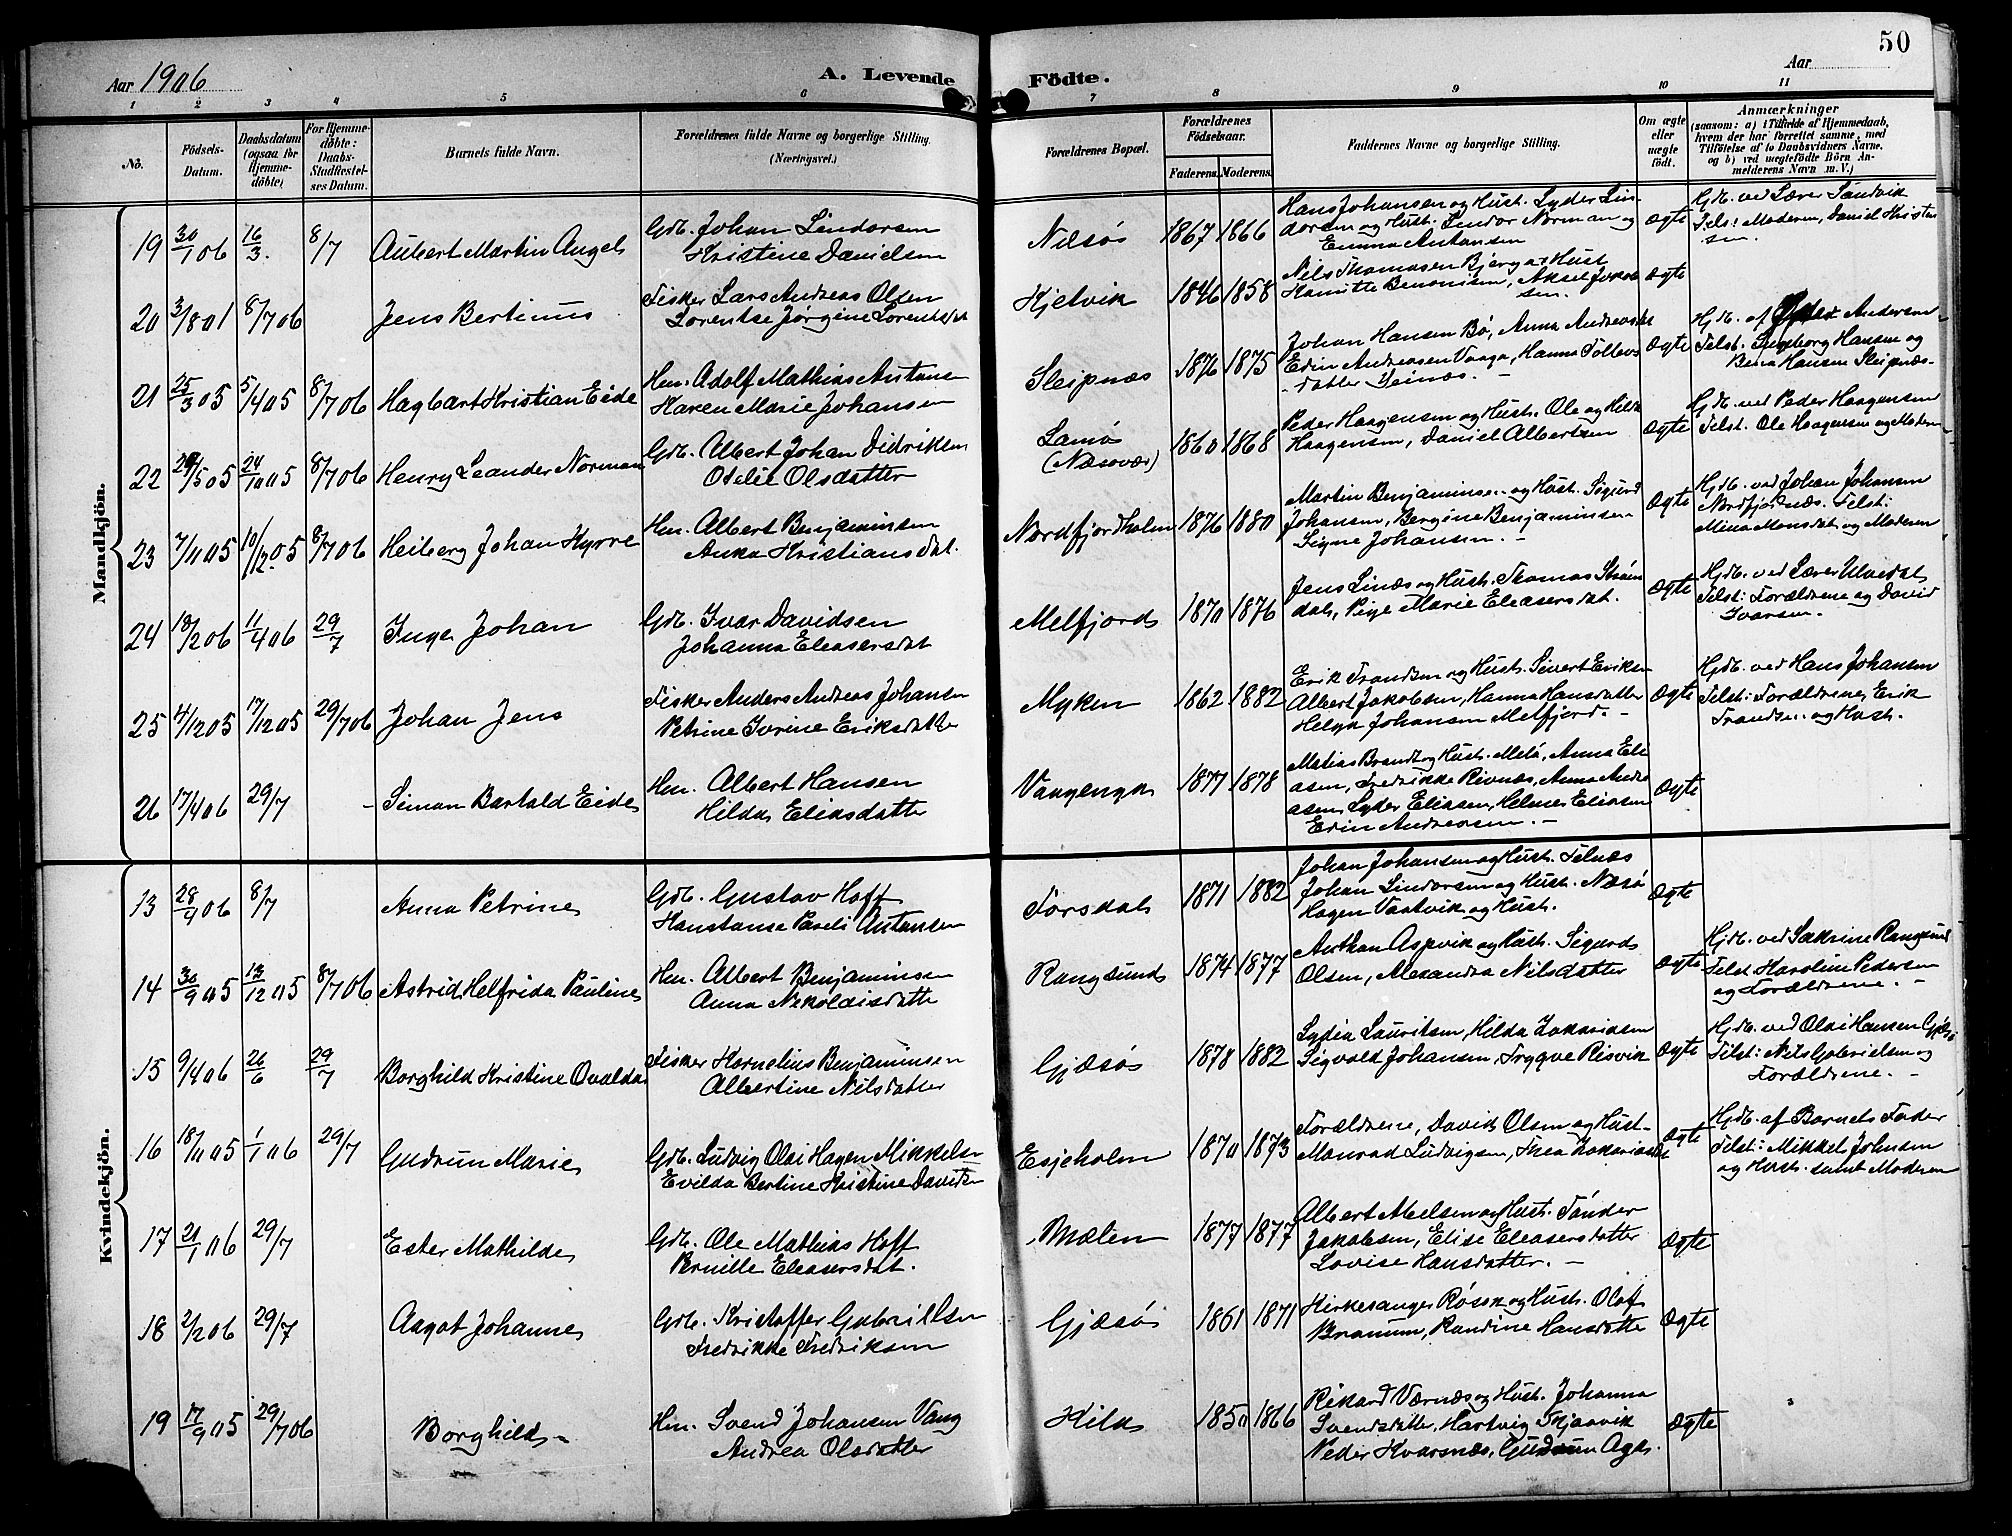 50
Aar 1906
A. Levende Födte.
Aar
1 2 3 4 5 6 7 8 9 10 11
No.
Födsels-Datum.
Daabsdatum (ogsaa for Hjemme-döbte)
For Hjemme-döbte: Daabs-Stadfæstel-ses Datum.
Barnets fulde Navn.
Forældrenes fulde Navne og borgerlige Stilling. (Næringsvei.)
Forældrenes Bopæl.
Forældrenes Födselsaar.
Faderens. Moderens.
Faddernes Navne og borgerlige Stilling.
Om ægte eller uægte födt.
Anmærkninger
(saasom: a) i Tilfælde af Hjemmedaab,
hvem der har forrettet samme, med
Tilföielse af to Daabsvidners Navne,
og b) ved uægtefödte Börn An-
melderens Navn m. V.)
Mandkjön.
19 30/1 06 16/3. 8/7 Aubert Martin Angel
Gdb. Johan Lindorsen
Kristine Danielsen
Næsø 1867 1866
Hans Johansen og Hust. Lyder Lin-
dorsen og Hust. Lindor Norman og
Emma Antonsen
ægte
Hjdb. ved Lærer Sandvik
Telst: Moderen, Daniel Kristen
sen.
20 3/8 01 8/7 06 Jens Bertinus
Fisker Lars Andreas Olsen
Lorentse Jörgine Lorentsdat
Kjelvik 1846 1858
Nils Thomasen Bjerga Hust
Hanitte Benonisen, Aksel Jakob
sen.
ægte
21 25/3 05 5/4 05 8/7 06 Hagbart Kristian Eide
Hm. Adolf Mathias Antons
Karen Marie Johansen
Sleipnæs 1876 1875
Johan Hansen Bö, Anna Andreasdat
Edin Andreasen Vaaga, Hanna Tollevs
datter Seinæs. -
ægte
Hjdb. af Andersen
Telst: Ingeborg Hansen og
Berna Hansen Sleipnæs-
22 5 05 24/10 05 8/7 06 Henry Leander Norman
Gdb. Albert Johan Didriksen
Otelie Olsdatter
Lamø
(Næsøvær) 1860 1868
Peder Haagensen og Hust. Ole og Hilda
Haagensen, Daniel Albertsen
ægte
Hjdb. ved Peder Haagensen
Telst. Ole Haagensen og Moderen
23 7/11 05 10/12 05 8/7 06 Heiberg Johan Kyrre
Hm. Albert Benjaminsen
Anna Kristiansdat.
Nordfjordholm 1876 1880
Martin Benjaminsen og Hust. Sigurd
Johansen, Bergine Benjaminsen
Signe Johansen. -
ægte
Hjdb. ved Johan Johansen
Nordfjordnæs. Telst:
Mina Monsdat. og Moderen
24 18/2 06 11/4 06 29/7 Inga Johan
Gdb. Ivar Davidsen
Johanna Eleasersdat
Melfjord 1870 1876
Jens Linæs og Hust. Thomas Strøm
dal, Pige Marie Eleasersdat.
ægte
Hjdb. ved Lærer Ulvedal
Telst: Forældrene og David
Ivarsen.
25 4/12 05 17/12 05 29/7 06 Johan Jens
Fisker Anders Andreas Johansen
Petrine Ivrine Eriksdatter
Myken 1862 1882
Erik Trondsen og Hust. Sivert Eriksen
Albert Jakobsen, Hanna Hansdatter
Helga Johansen Melfjord. -
ægte
Hjdb. ved Hans Johansen
Telst: Forældrene, Erik
Trondsen og Hust.
26 17/4 06 29/7 - Simon Bartold Eide
Hm. Albert Hansen
Hilda Eliasdatter
Vaagenga 1877 1878
Matias Brandt og Hust. Melø, Anna Eli
asen, Fredrikke Risnæs, Anna Andre
asen Lyder Eliasen, Helmer Eliasen
Edin Andreasen. -
ægte
Kvindekjön.
13 28/4 06 8/7 Anna Petrine
Gdb. Gustav Hoff
Konstanse Pareli Antonsen
Forsdal 1871 1882
Johan Johansen og Hust. Telnæs
Johan Lindorsen og Hust. Næsø
Hagen Vaatvik og Hust.
ægte
14 30/9 05 13/12 05 8/7 06 Astrid Helfrida Pauline
Hm. Albert Benjaminsen
Anna Nikolaisdatter
Rangsund 1874 1877
Anthon Aspvik og Hust. Sigurd
Olsen, Alexandra Nilsdatter
ægte
Hjdb. ved Sakrine Rangsund
Telst. Karoline Pedersen
og Forældrene. -
15 9/4 06 26/6 29/7 Borghild Kristine Ovalda
Fisker Kornelius Benjaminsen
Albertine Nilsdatter
Gjæsø 1878 1882
Lydia Lauritsen, Hilda Zakariasen
Sigvald Johansen, Trygve Risvik
ægte
Hjdb. ved Olai Hansen Gjæsø
Telst: Nils Gabrielsen og
Forældrene. -
16 18/11 05 1/1 06 29/7 Gudrun Marie
Gdb. Ludvig Olai Hagen Mikkelsen
Evilda Bertine Kristine Davidsen
Esjeholm 1870 1873
Forældrene, David Olsen og Hust-
Monrad Ludvigsen, Thea Zakariasdat
ægte
Hjdb. af Barnets Fader
Telst: Mikkel Johnsen
og Hust. samt Moderen
17 21/1 06 29/7 Ester Mathilde
Gdb. Ole Mathias Hoff
Pernille Eleasersdat.
Mælen 1877 1877
Albert Melsen og Hust. Tönder
Jakobsen, Elise Eleasersdatter
Lovise Hansdatter. -
ægte
18 2/2 06 29/7 Aagot Johanne
Gdb. Kristoffer Gabrielsen
Fredrikke Fredriksen
Gjæsø 1861 1871
Kirkesanger Røssn og Hust. Olaf
Branum, Randine Hansdatter
ægte
19 17/9 05 29/7 06 Borghild -
Hm. Svend Johansen Vang
Andrea Olsdatter
Kila 1850 1866
Rikard Værnæs og Hust. Johanna
Svendsdatter, Hartvig Skjaavik
Peder Kvarsnæs, Gudrun Age.
ægte